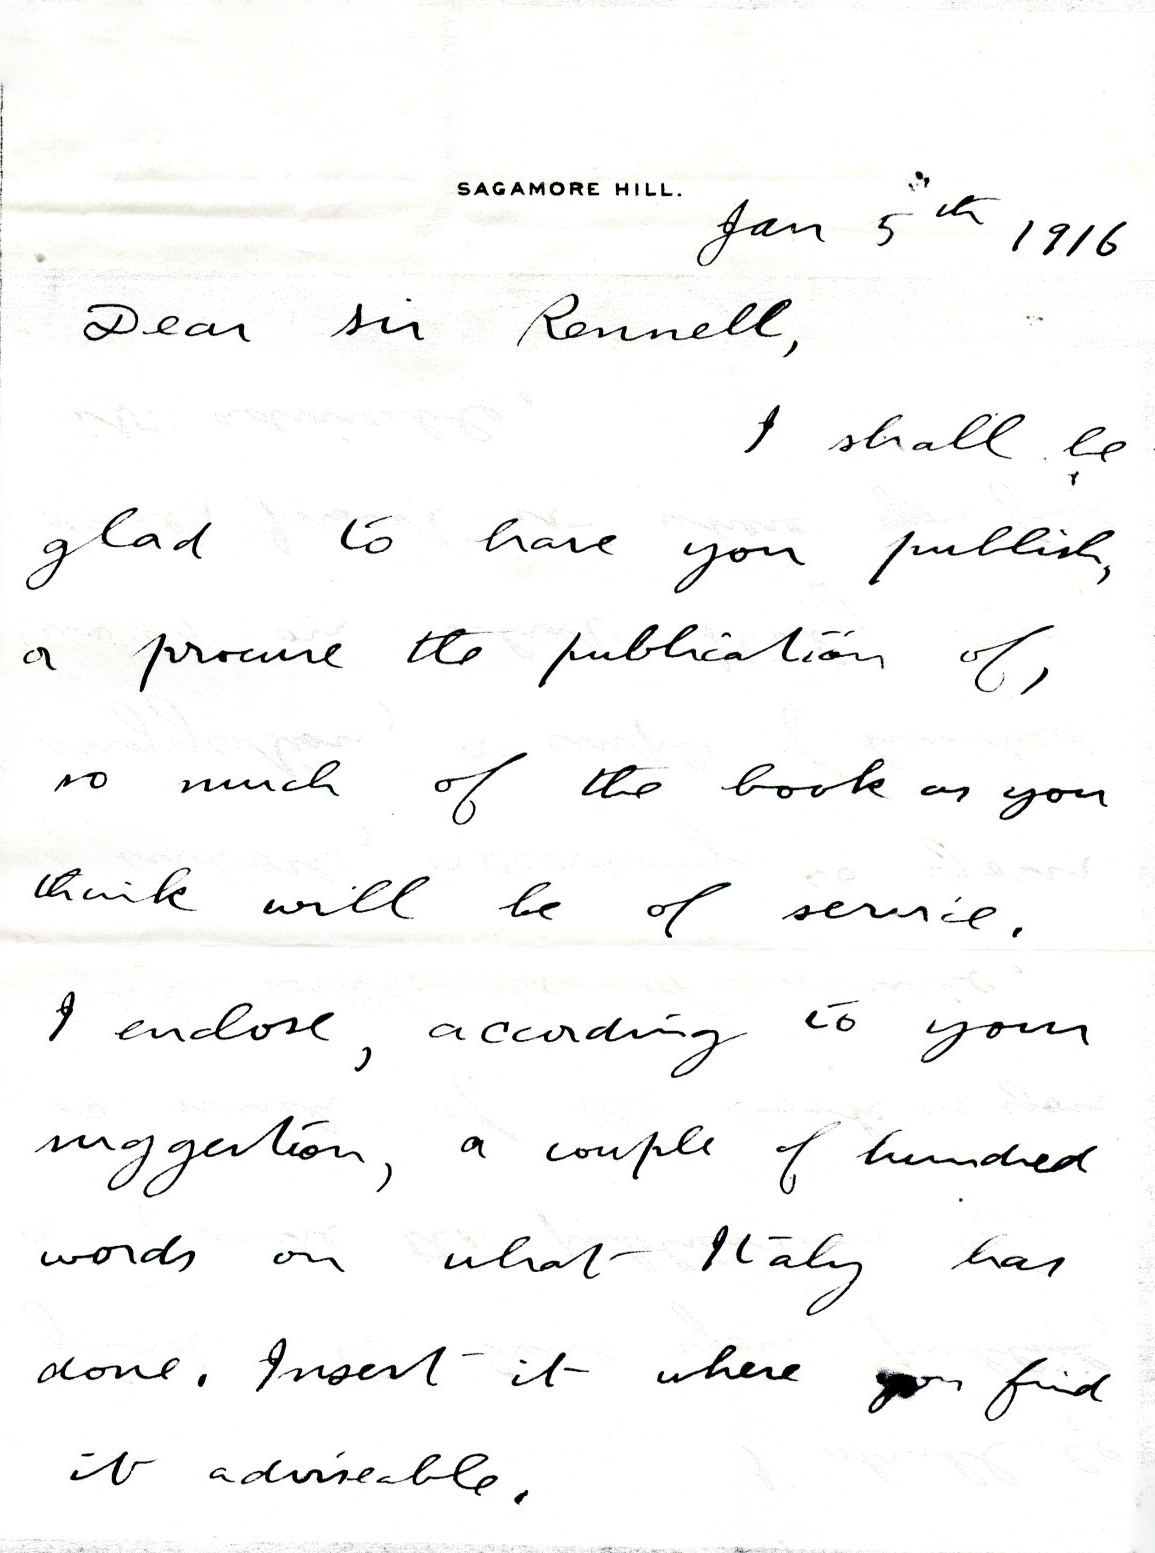 SAGAMORE HILL.
Jan 5th 1916
Dear Sir Rennell,
I shall be
glad to have you publish,
or procure the publication of,
so much of the book as you
think will be of service.
I enclose, according to your
suggestion, a couple of hundred
words on what Italy has
done. Insert it where you find
it adviseable.